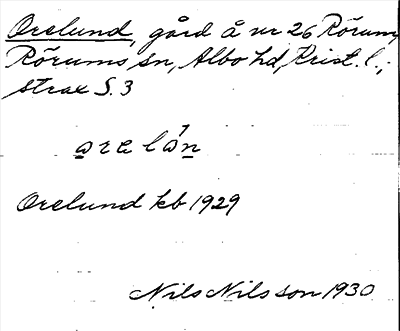 Orelund, gård å nr 26 Rörum,
Rörums sn, Albo hd, Krist. l.;
strax S. 3
orelón
Orelund kb 1929
Nils Nilsson 1930